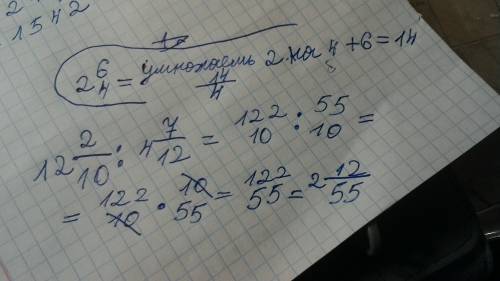 1542
2 6/4 = умножаем 2 на 4 + 6 = 14
14/4
12 2/10 : 4 7/12 = 122/10 : 55/10 =
= 122/10 · 10/55 = 122/55 = 2 12/55